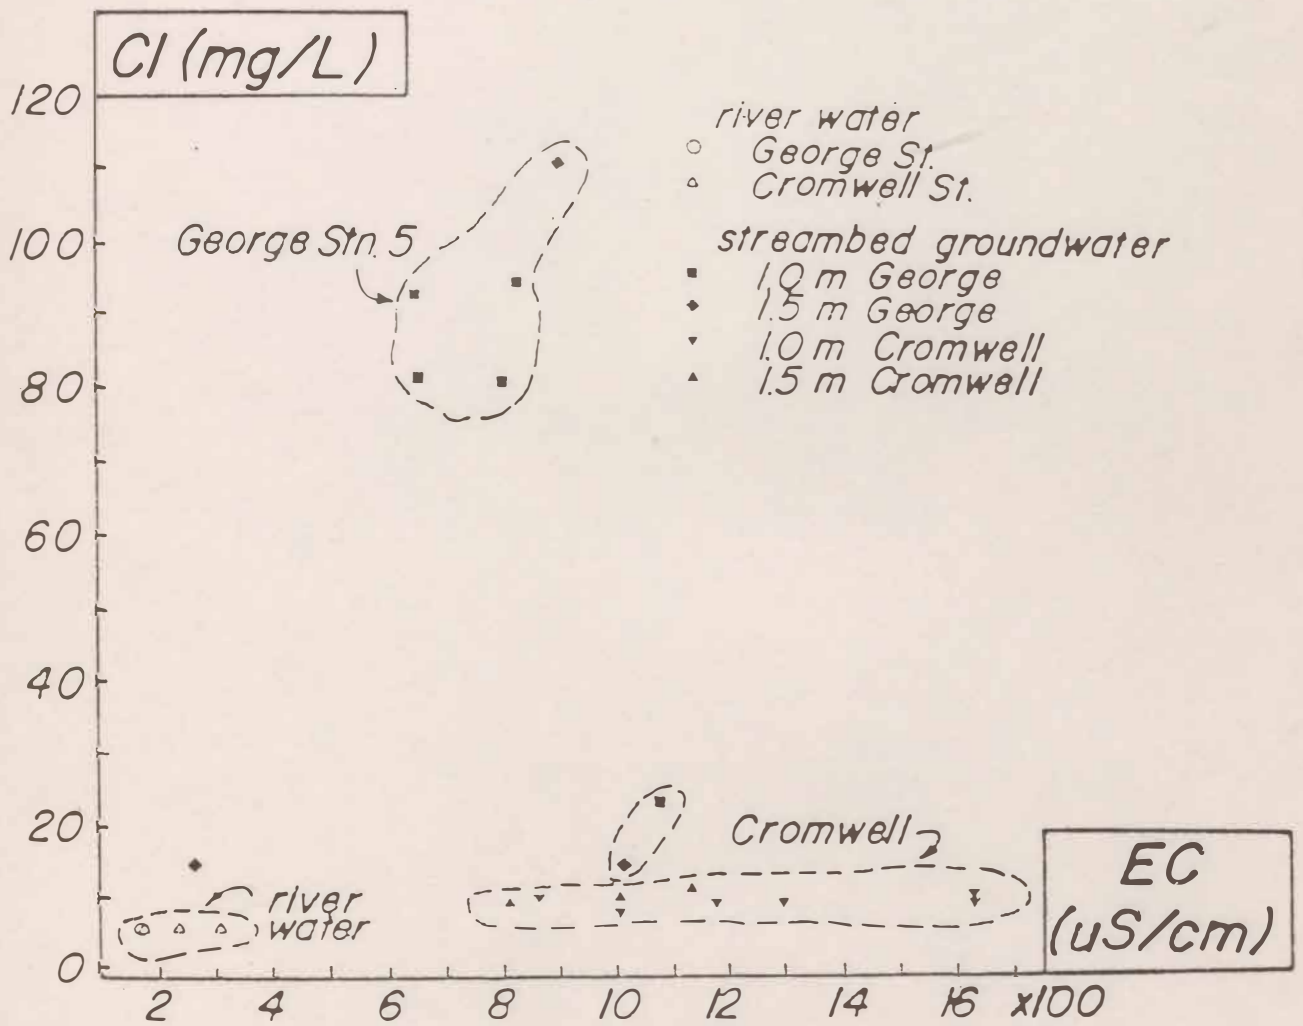 Cl (mg/L)
120
100
80
60
40
20
0
river water
George St.
Cromwell St.
streambed groundwater
1.0 m George
1.5 m George
1.0 m Cromwell
1.5 m Cromwell
George Stn. 5
Cromwell
river
water
EC
(uS/cm)
2 4 6 8 10 12 14 16 x100